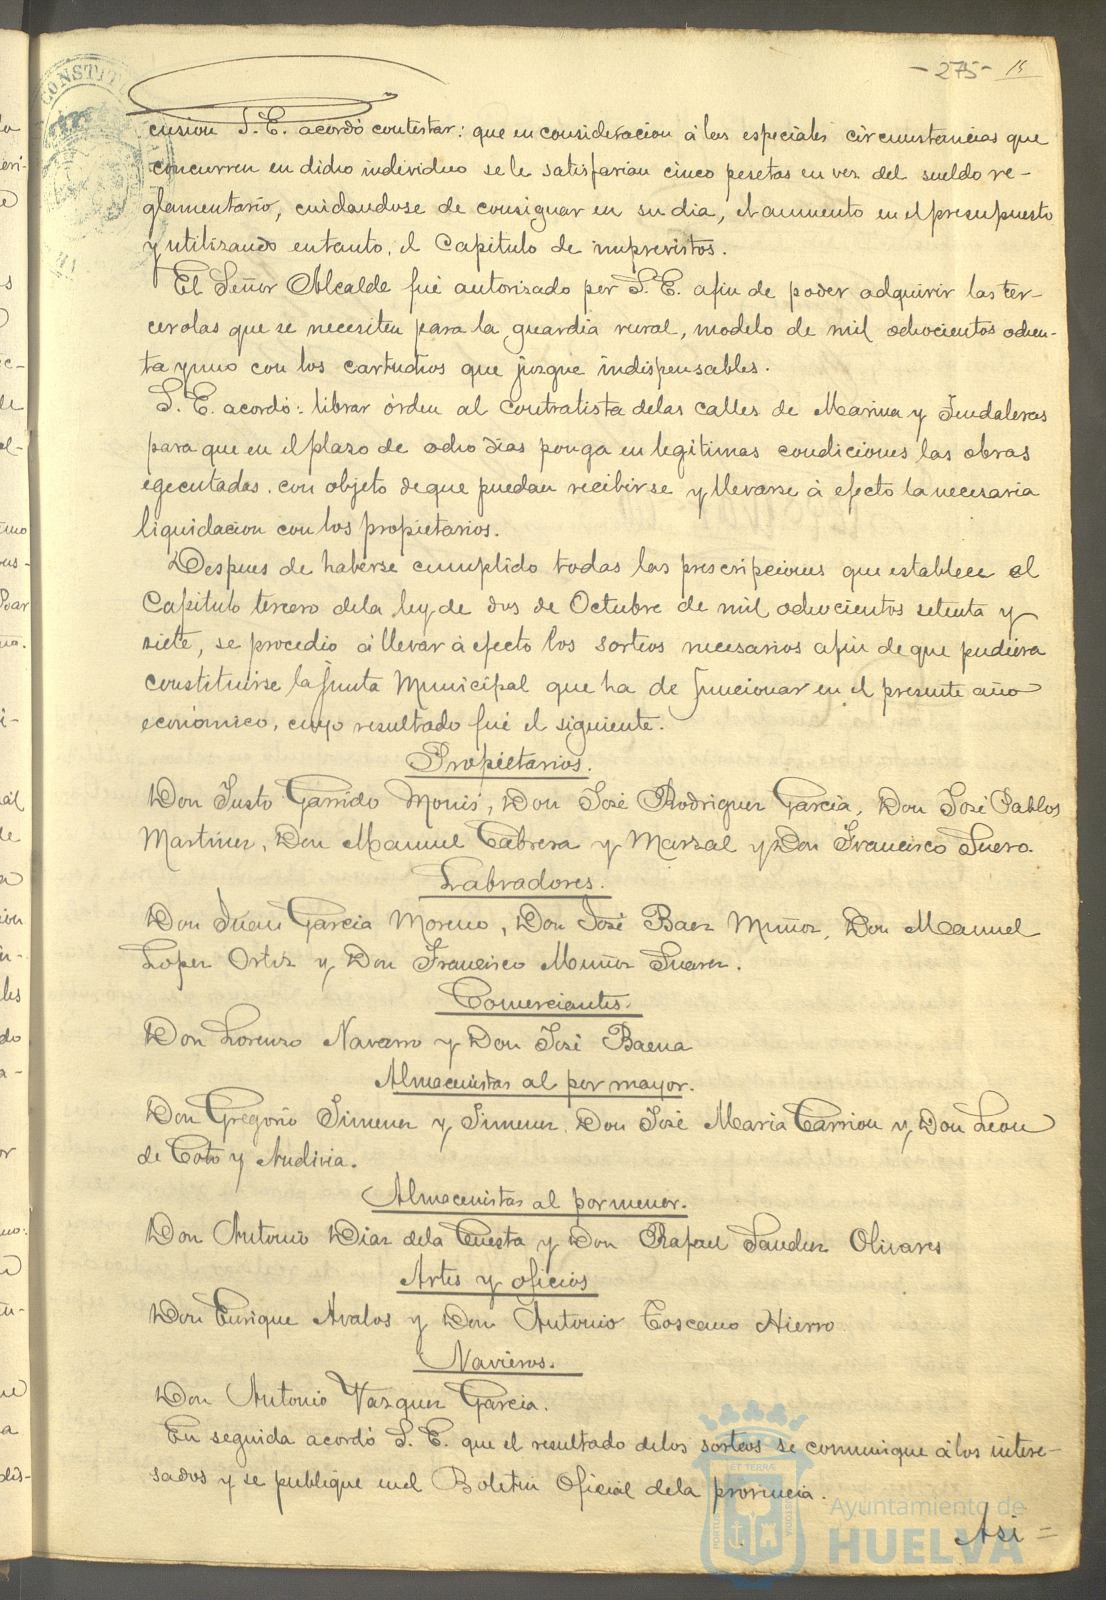 - 275 - 15
CONSTIT
cusion S. E. acordó contestar: que en consideracion á las especiales circunstancias que
concurren en dicho individuo se le satisfarian cinco pesetas en vez del sueldo re-
glamentario, cuidandose de consignar en su dia, el aumento en el presupuesto
y utilizando entanto, el Capitulo de imprevistos.
El Señor Alcalde fué autorizado por S. E. afin de poder adquirir las ter-
cerolas que se necesiten para la guardia rural, modelo de mil ochocientos ochen-
ta y uno con los cartuchos que juzgue indispensables.
S. E. acordó: librar órden al contratista delas calles de Marina y Tendaleras
para que en el plazo de ocho dias ponga en legitimas condiciones las obras
egecutadas. con objeto deque puedan recibirse y llevarse á efecto la necesaria
liquidacion con los propietarios.
Despues de haberse cumplido todas las prescripciones que establece el
Capitulo tercero dela ley de dos de Octubre de mil ochocientos setenta y
siete, se procedió á llevar á efecto los sorteos necesarios afin de que pudiera
constituirse la Junta Municipal que ha de funcionar en el presente año
económico, cuyo resultado fué el siguiente.
Propietarios.
Don Justo Garrido Monis, Don José Rodriguez Garcia, Don José Pablos
Martinez, Don Manuel Cabrera y Marzal y Don Francisco Suero.
Labradores.
Don Juan Garcia Moreno, Don José Baez Muñoz, Don Manuel
Lopez Ortiz y Don Francisco Muñoz Suarez.
Comerciantes.
Don Lorenzo Navarro y Don José Baena
Almacenistas al por mayor.
Don Gregorio Jimenez y Jimenez. Don José Maria Carrion y Don Leon
de Coto y Andivia.
Almacenistas al por menor.
Don Antonio Diaz dela Cuesta y Don Rafael Sanchez Olivares
Artes y oficios
Don Enrique Avalos y Don Antonio Toscano Hierro
Navieros.
Don Antonio Vazquez Garcia.
En seguida acordó S. E. que el resultado delos sorteos se comunique á los intere-
sados y se publique en el Boletin Oficial dela provincia.
Asi =
Ayuntamiento de
HUELVA